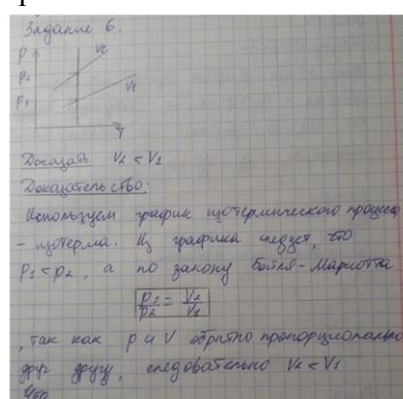 Задание 6.
p
V₂
p₂
V₁
p₁
T
Доказать V₂ < V₁
Доказательство:
Используем график изотермического процесса
- изотерма. Из графика следует, что
p₁ < p₂, а по закону Бойля-Мариотта
p₁/p₂ = V₂/V₁
, так как p и V обратно пропорциональны
друг другу, следовательно V₂ < V₁